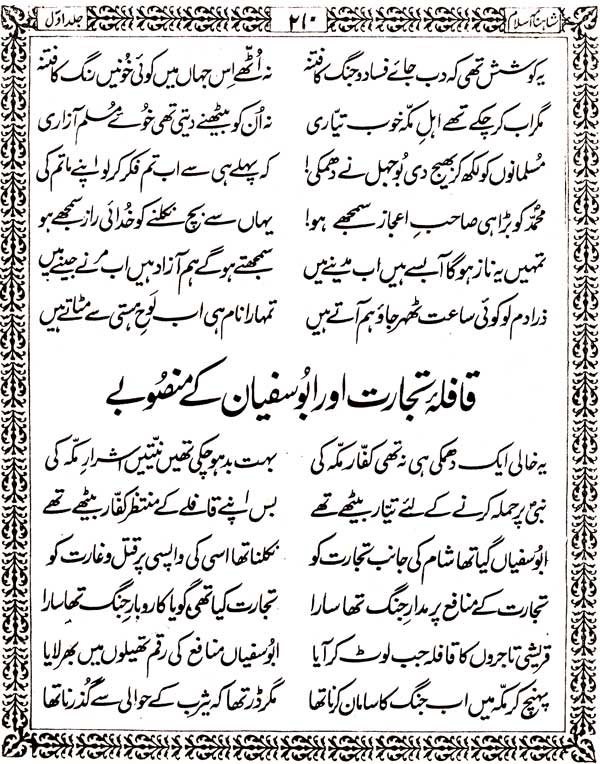 شاہنامۂ اسلام ۲۱۰ جلد اوّل
یہ کوشش تھی کہ دب جائے فساد و جنگ کا فتنہ نہ اُٹھے اِس جہاں میں کوئی خونیں رنگ کا فتنہ
مگر اب کر چکے تھے اہلِ مکّہ خوب تیّاری نہ اُن کو بیٹھنے دیتی تھی خُوئے مُسلم آزاری
مُسلمانوں کو لکھ کر بھیج دی بُوجہل نے دھمکی! کہ پہلے ہی سے اب تم فکر کر لو اپنے ماتم کی
محمّدؐ کو بڑا ہی صاحبِ اعجاز سمجھے ہو! یہاں سے بچ نکلنے کو خُدائی راز سمجھے ہو
تمہیں یہ ناز ہو گا آ بسے ہیں اب مدینے میں سمجھتے ہو گے ہم آزاد ہیں اب مرنے جینے میں
ذرا دم لو کوئی ساعت ٹھہر جاؤ ہم آتے ہیں تمہارا نام ہی اب لَوحِ ہستی سے مٹاتے ہیں
قافلۂ تجارت اور ابُوسفیان کے منصُوبے
یہ خالی ایک دھمکی ہی نہ تھی کفّارِ مکّہ کی بہت بد ہو چکی تھیں نیّتیں اشرارِ مکّہ کی
نبیؐ پر حملہ کرنے کے لئے تیّار بیٹھے تھے بس اپنے قافلے کے منتظر کفّار بیٹھے تھے
ابُوسفیاں گیا تھا شام کی جانب تجارت کو نکلنا تھا اسی کی واپسی پر قتل و غارت کو
تجارت کے منافع پر مدارِ جنگ تھا سارا تجارت کیا تھی گویا کاروبارِ جنگ تھا سارا
قریشی تاجروں کا قافلہ جب لوٹ کر آیا ابُوسفیاں منافع کی رقم تھیلوں میں بھر لایا
پہنچ کر مکّہ میں اب جنگ کا سامان کرنا تھا مگر ڈر تھا کہ یثرب کے حوالی سے گُذرنا تھا